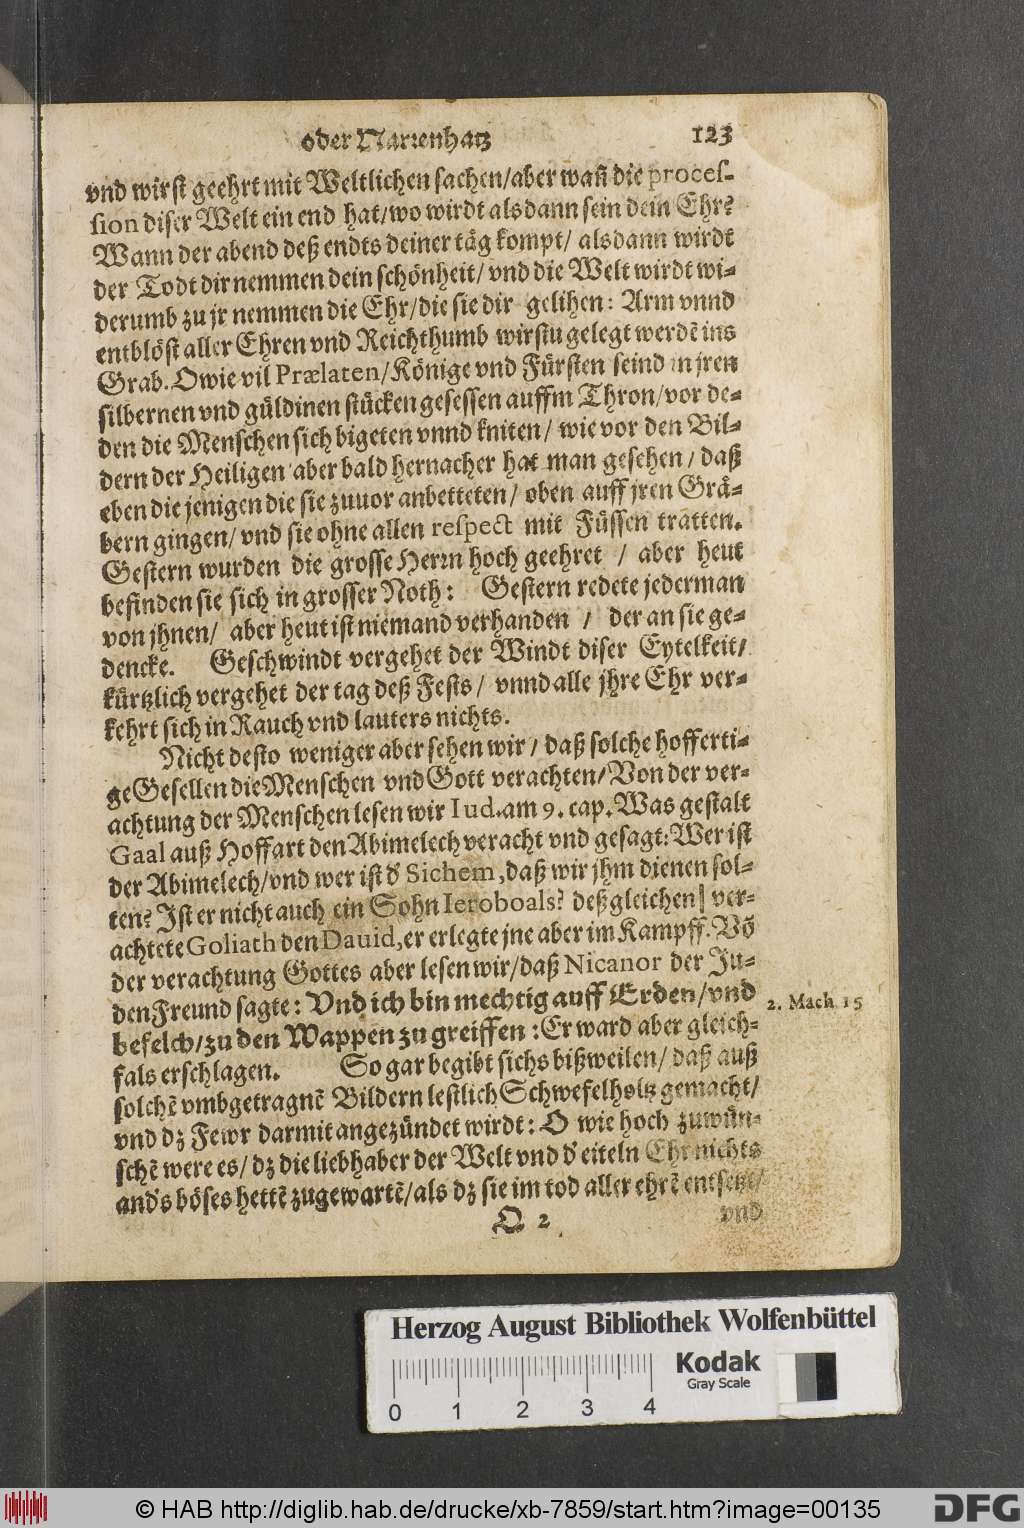 oder Narrenhatz 123
vnd wirst geehrt mit Weltlichen sachen/aber wañ die proces-
sion diser Welt ein end hat/wo wirdt alsdann sein dein Ehr?
Wann der abend deß endts deiner täg kompt/ alsdann wirdt
der Todt dir nemmen dein schönheit/ vnd die Welt wirdt wi-
derumb zu jr nemmen die Ehr/die sie dir gelihen: Arm vnnd
entblöst aller Ehren vnd Reichthumb wirstu gelegt werdẽ ins
Grab. O wie vil Prælaten/Könige vnd Fürsten seind in jren
silbernen vnd güldinen stücken gesessen auffm Thron/vor de-
den die Menschen sich bigeten vnnd kniten/ wie vor den Bil-
dern der Heiligen aber bald hernacher hat man gesehen/ daß
eben die jenigen die sie zuuor anbetteten/ oben auff jren Grä-
bern gingen/ vnd sie ohne allen respect mit Füssen tratten.
Gestern wurden die grosse Herrn hoch geehret / aber heut
befinden sie sich in grosser Noth: Gestern redete jederman
von jhnen/ aber heut ist niemand verhanden / der an sie ge-
dencke. Geschwindt vergehet der Windt diser Eytelkeit/
kürtzlich vergehet der tag deß Fests/ vnnd alle jhre Ehr ver-
kehrt sich in Rauch vnd lauters nichts.
Nicht desto weniger aber sehen wir/ daß solche hofferti-
ge Gesellen die Menschen vnd Gott verachten/ Von der ver-
achtung der Menschen lesen wir Iud.am 9. cap. Was gestalt
Gaal auß Hoffart den Abimelech veracht vnd gesagt: Wer ist
der Abimelech/vnd wer ist d' Sichem, daß wir jhm dienen sol-
ten? Ist er nicht auch ein Sohn Ieroboals? deßgleichen ver-
achtete Goliath den Dauid, er erlegte jne aber im Kampff. Võ
der verachtung Gottes aber lesen wir/daß Nicanor der Ju-
den Freund sagte: Vnd ich bin mechtig auff Erden/vnd
befelch/zu den Wappen zu greiffen: Er ward aber gleich-
fals erschlagen. So gar begibt sichs bißweilen/ daß auß
solchẽ vmbgetragnẽ Bildern lestlich Schwefelholtz gemacht/
vnd dz Fewr darmit angezündet wirdt: O wie hoch zuwün-
schẽ were es/ dz die liebhaber der Welt vnd d' eiteln Ehr nichts
and's böses hettẽ zugewartẽ/als dz sie im tod aller ehrẽ entsetzt/
Q 2 vnd
2. Mach 15
Herzog August Bibliothek Wolfenbüttel
Kodak
Gray Scale
0 1 2 3 4
© HAB http://diglib.hab.de/drucke/xb-7859/start.htm?image=00135
DFG